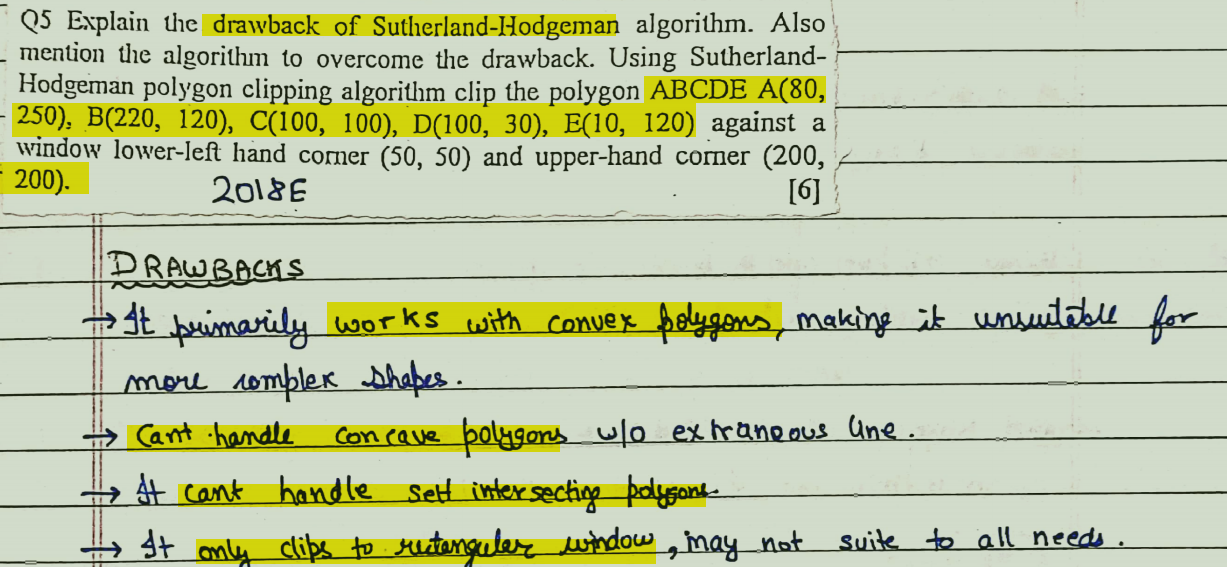 Q5 Explain the drawback of Sutherland-Hodgeman algorithm. Also
mention the algorithm to overcome the drawback. Using Sutherland-
Hodgeman polygon clipping algorithm clip the polygon ABCDE A(80,
250), B(220, 120), C(100, 100), D(100, 30), E(10, 120) against a
window lower-left hand corner (50, 50) and upper-hand corner (200,
200).
2018E [6]
DRAWBACKS
→ It primarily works with convex polygons, making it unsuitable for
more complex shapes.
→ Cant handle concave polygons w/o extraneous line.
→ It cant handle self intersecting polygons.
→ It only clips to rectangular window, may not suite to all needs.